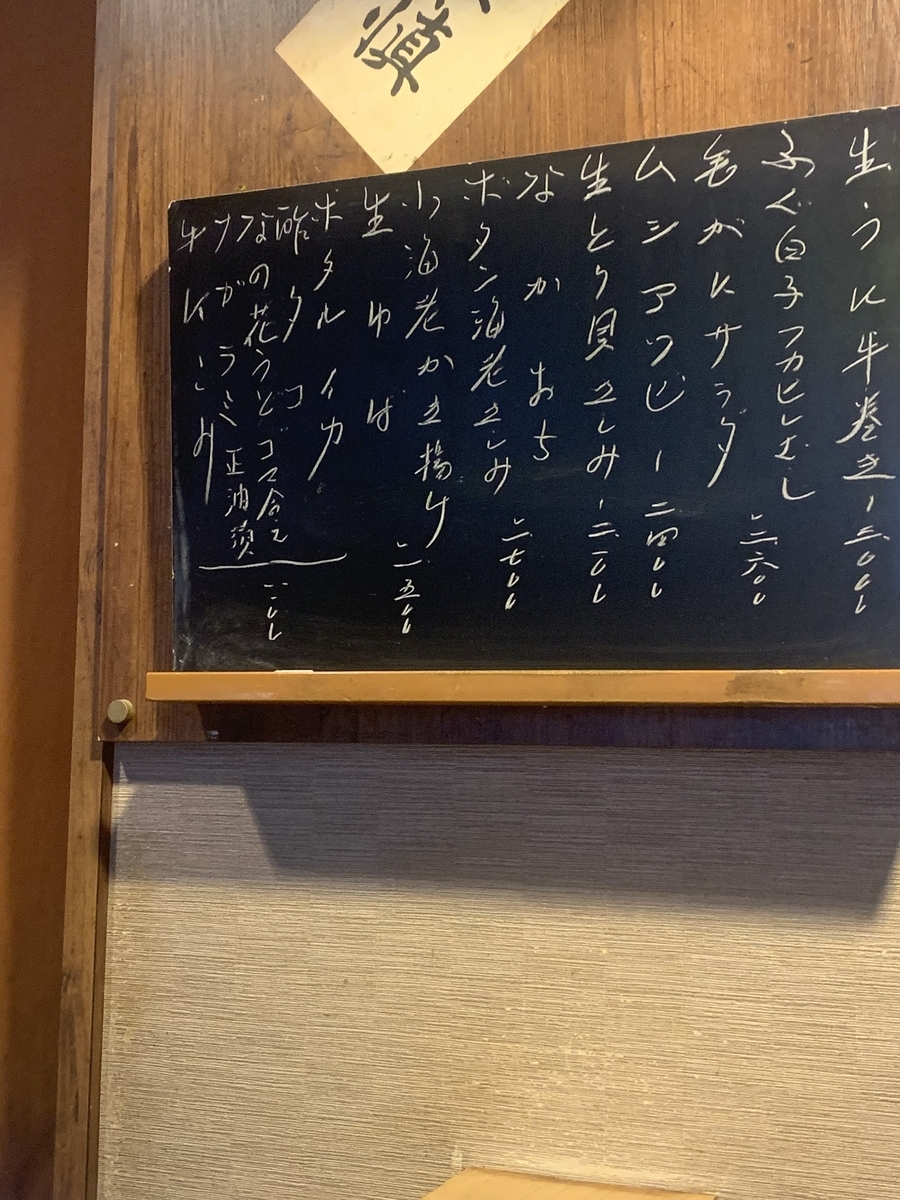 生うに牛巻きー三〇〇〇
ふぐ白子フカヒレむし
毛がにサラダ
ー三六〇〇
ムシアワビー二四〇〇
生とり貝さしみー二〇〇〇
なかおち
ボタン海老さしみ
ー一七〇〇
小海老かき揚げ
生ゆば
ー一五〇〇
ホタルイカ
酢ダコ
なの花うどゴマ合え
正油漬
牛にこみ